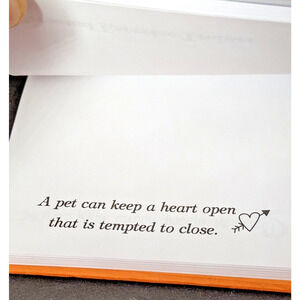 A pet can keep a heart open
that is tempted to close.